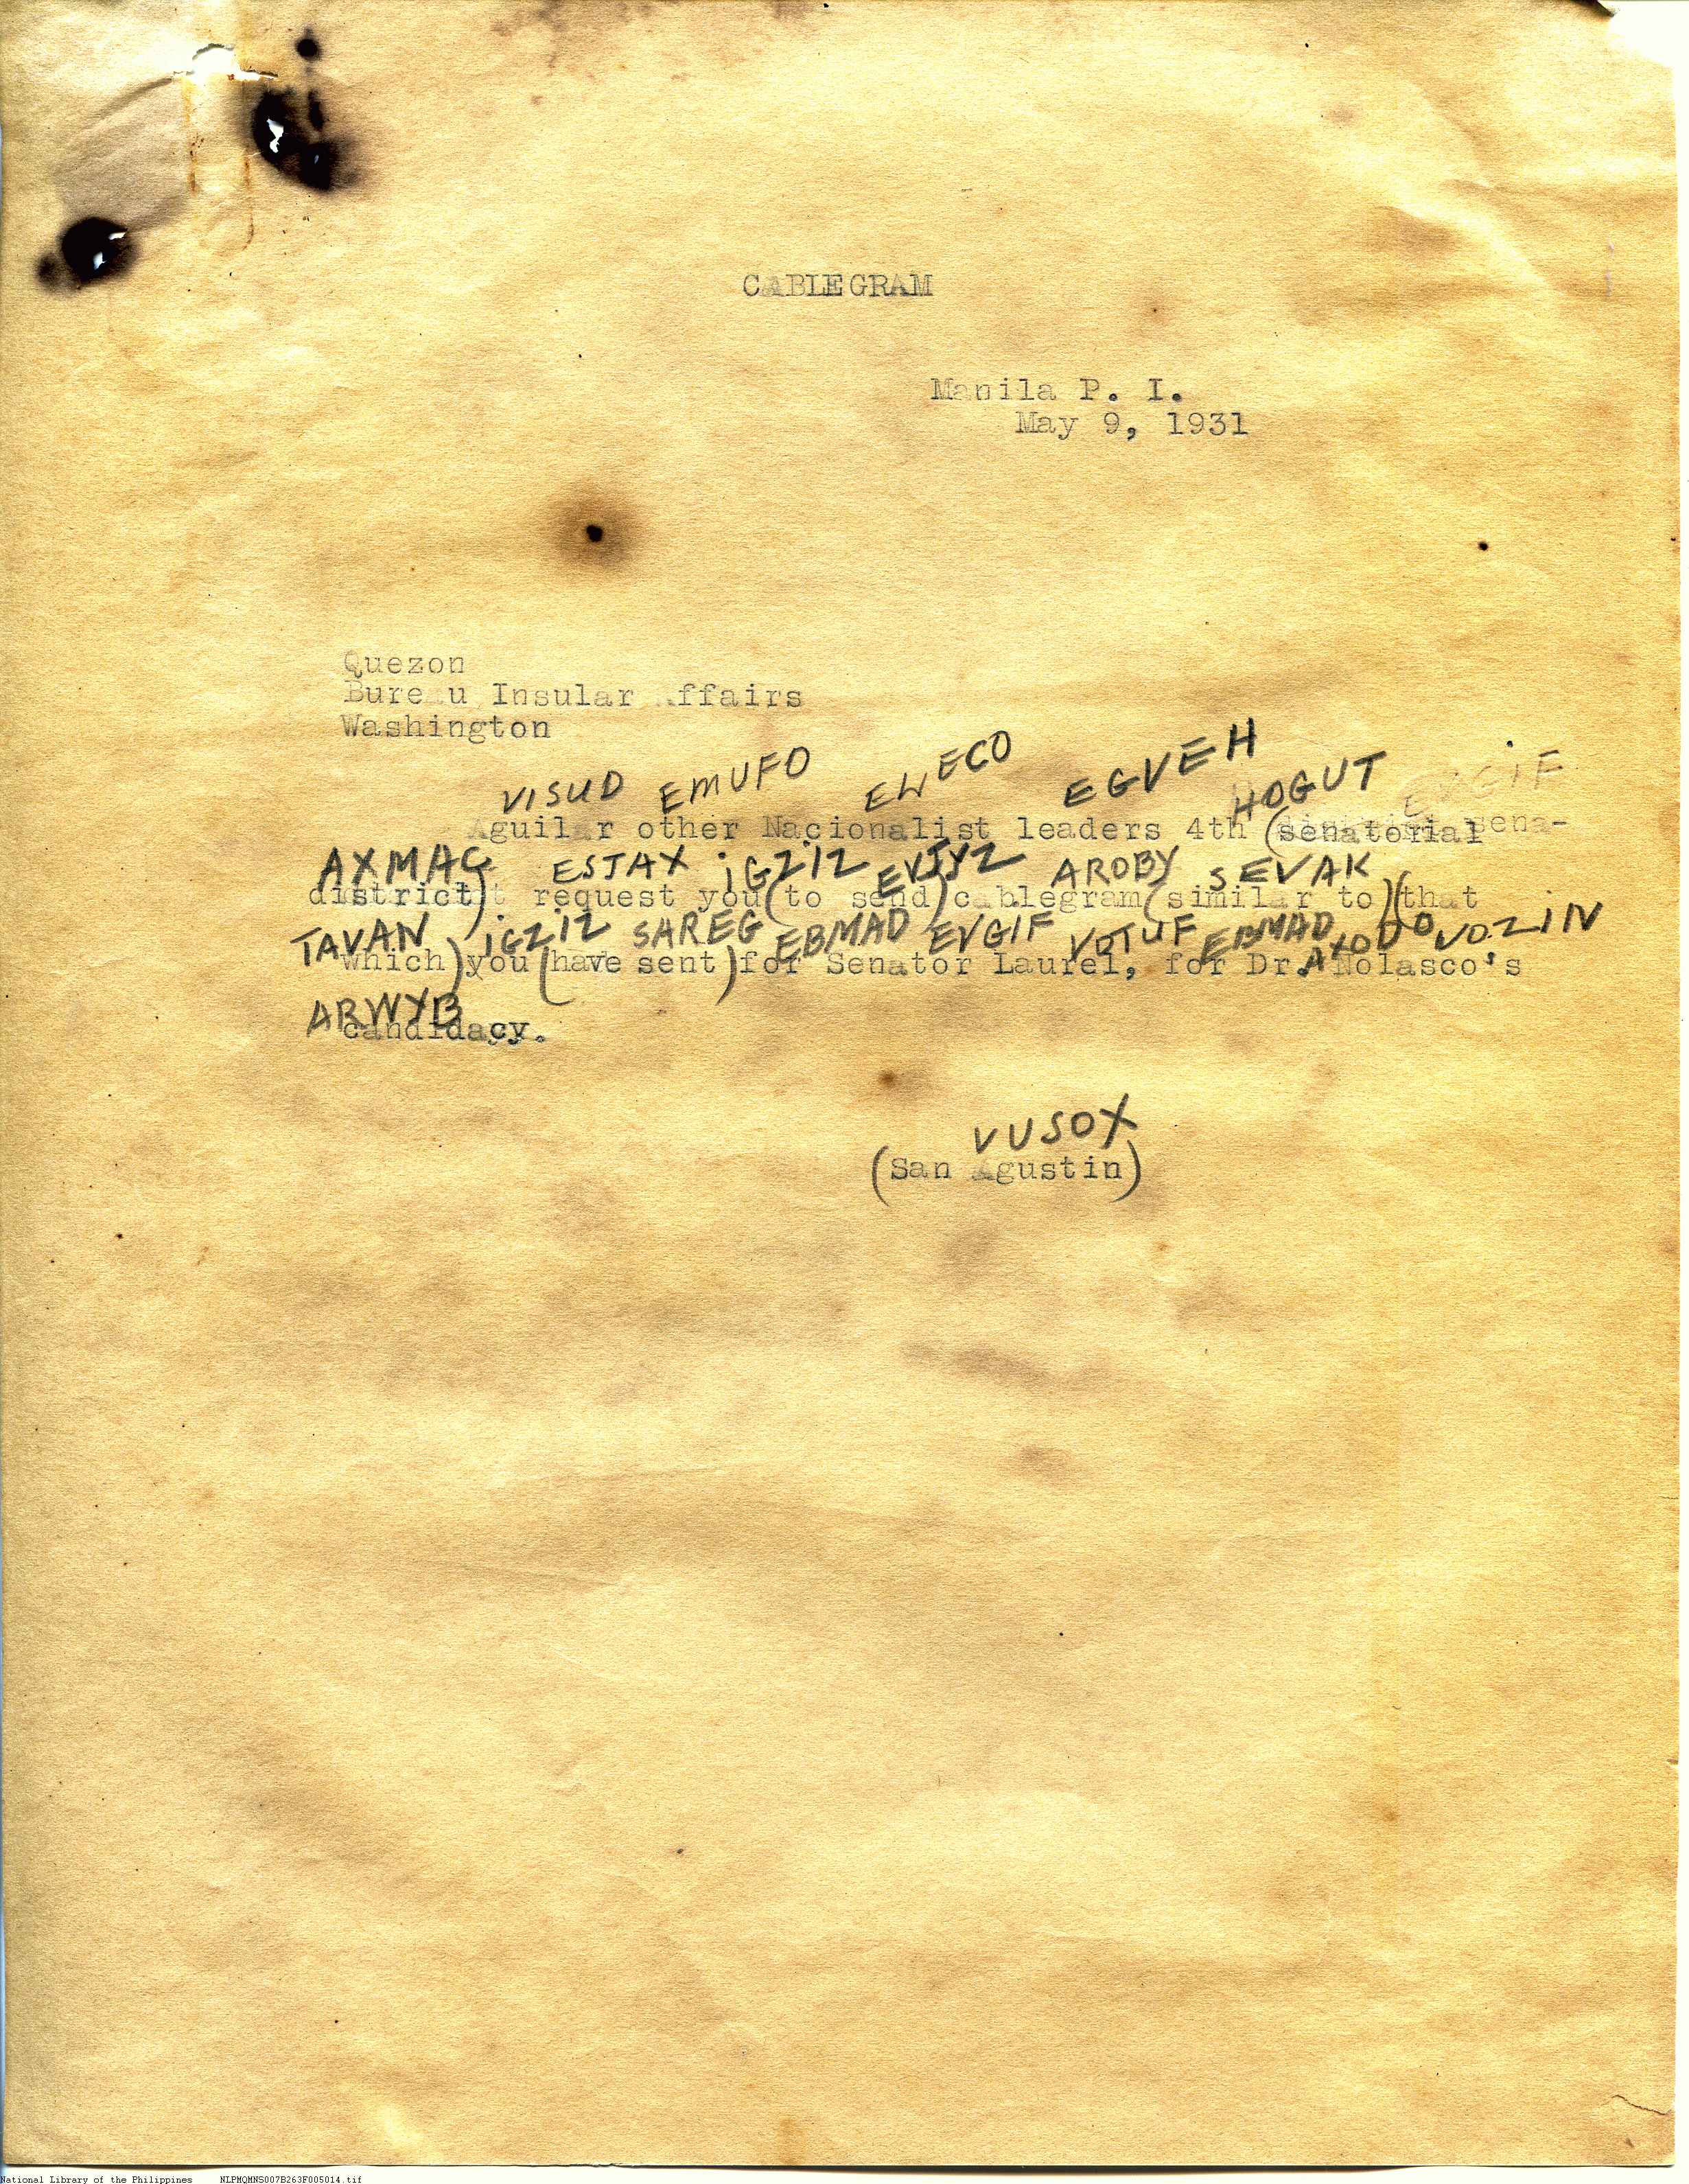 CABLEGRAM
Manila P. I.
May 9, 1931
Quezon
Bureau Insular Affairs
Washington
VISUD EMUFO EWECO EGVEH HOGUT EVGIF
Aguilar other Nacionalist leaders 4th (senatorial sena-
AXMAG ESTAX IGZIZ EVJYZ AROBY SEVAK
district) request you (to send) cablegram (similar to) (that
TAVAN IGZIZ SAREG EBMAD EVGIF VOTUF EBMAD AXODO VOZIN
which) you (have sent) for Senator Laurel, for Dr. Nolasco's
ARWYB
candidacy.
VUSOX
(San Agustin)
National Library of the Philippines NLPMQMNS007B263F005014.tif